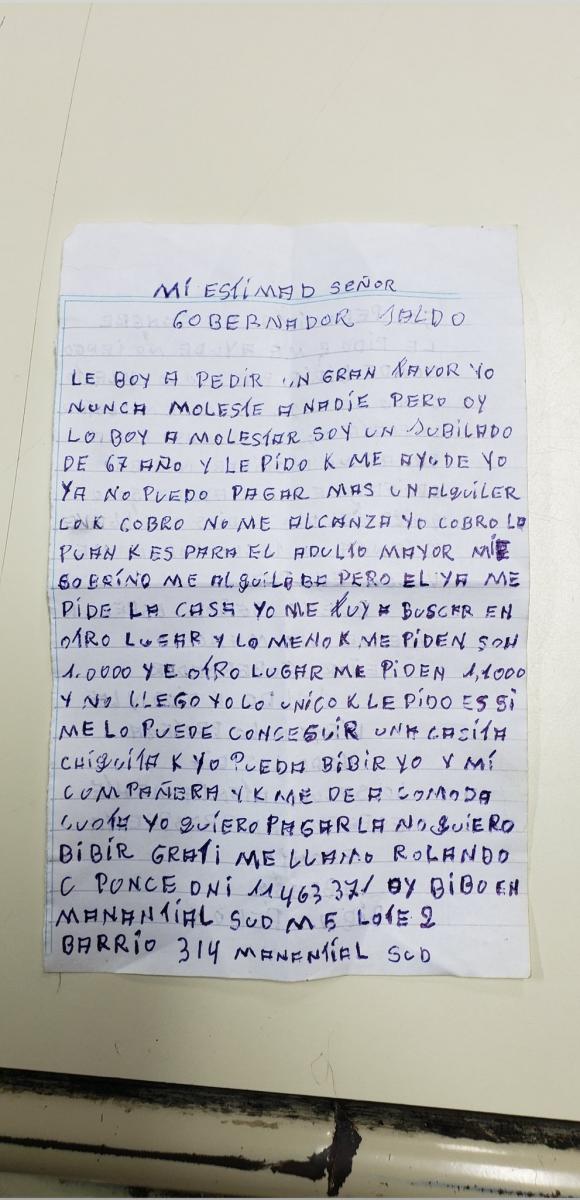 MI ESTIMAD SEÑOR
GOBERNADOR JALDO
LE BOY A PEDIR UN GRAN FAVOR YO
NUNCA MOLESTE A NADIE PERO OY
LO BOY A MOLESTAR SOY UN JUBILADO
DE 67 AÑO Y LE PIDO K ME AYUDE YO
YA NO PUEDO PAGAR MAS UN ALQUILER
LO K COBRO NO ME ALCANZA YO COBRO LA
PUAN K ES PARA EL ADULTO MAYOR MI
SOBRINO ME ALQUILABA PERO EL YA ME
PIDE LA CASA YO ME FUY A BUSCAR EN
OTRO LUGAR Y LO MENO K ME PIDEN SON
1.0000 Y E OTRO LUGAR ME PIDEN 1,1000
Y NO LLEGO YO LO UNICO K LE PIDO ES SI
ME LO PUEDE CONCEGUIR UNA CASITA
CHIQUITA K YO PUEDA BIBIR YO Y MI
COMPAÑERA Y K ME DE A COMODA
CUOTA YO QUIERO PAGARLA NO QUIERO
BIBIR GRATI ME LLAMO ROLANDO
C PONCE DNI 11463371 OY BIBO EN
MANANTIAL SUD ME LOTE 2
BARRIO 314 MANANTIAL SUD